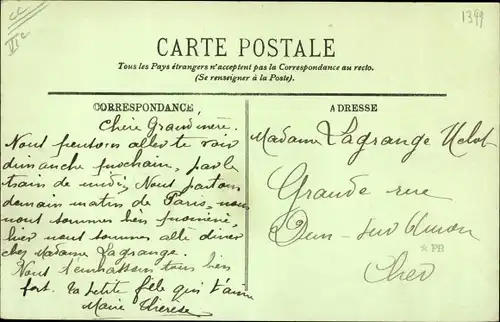 CC
VIc
1399
CARTE POSTALE
Tous les Pays étrangers n'acceptent pas la Correspondance au recto.
(Se renseigner à la Poste).
CORRESPONDANCE
Chère Grand'mère.
Nous pensons aller te voir
dimanche prochain, par le
train de midi, Nous partons
demain matin de Paris, nous
nous sommes bien
hier nous sommes allé dîner
chez Madame Lagrange.
Nous t'embrassons tous bien
fort. ta petite fille qui t'aime
Marie Thérèse
ADRESSE
Madame Lagrange
Grande rue
Dun-sur-Auron
*PB
Cher